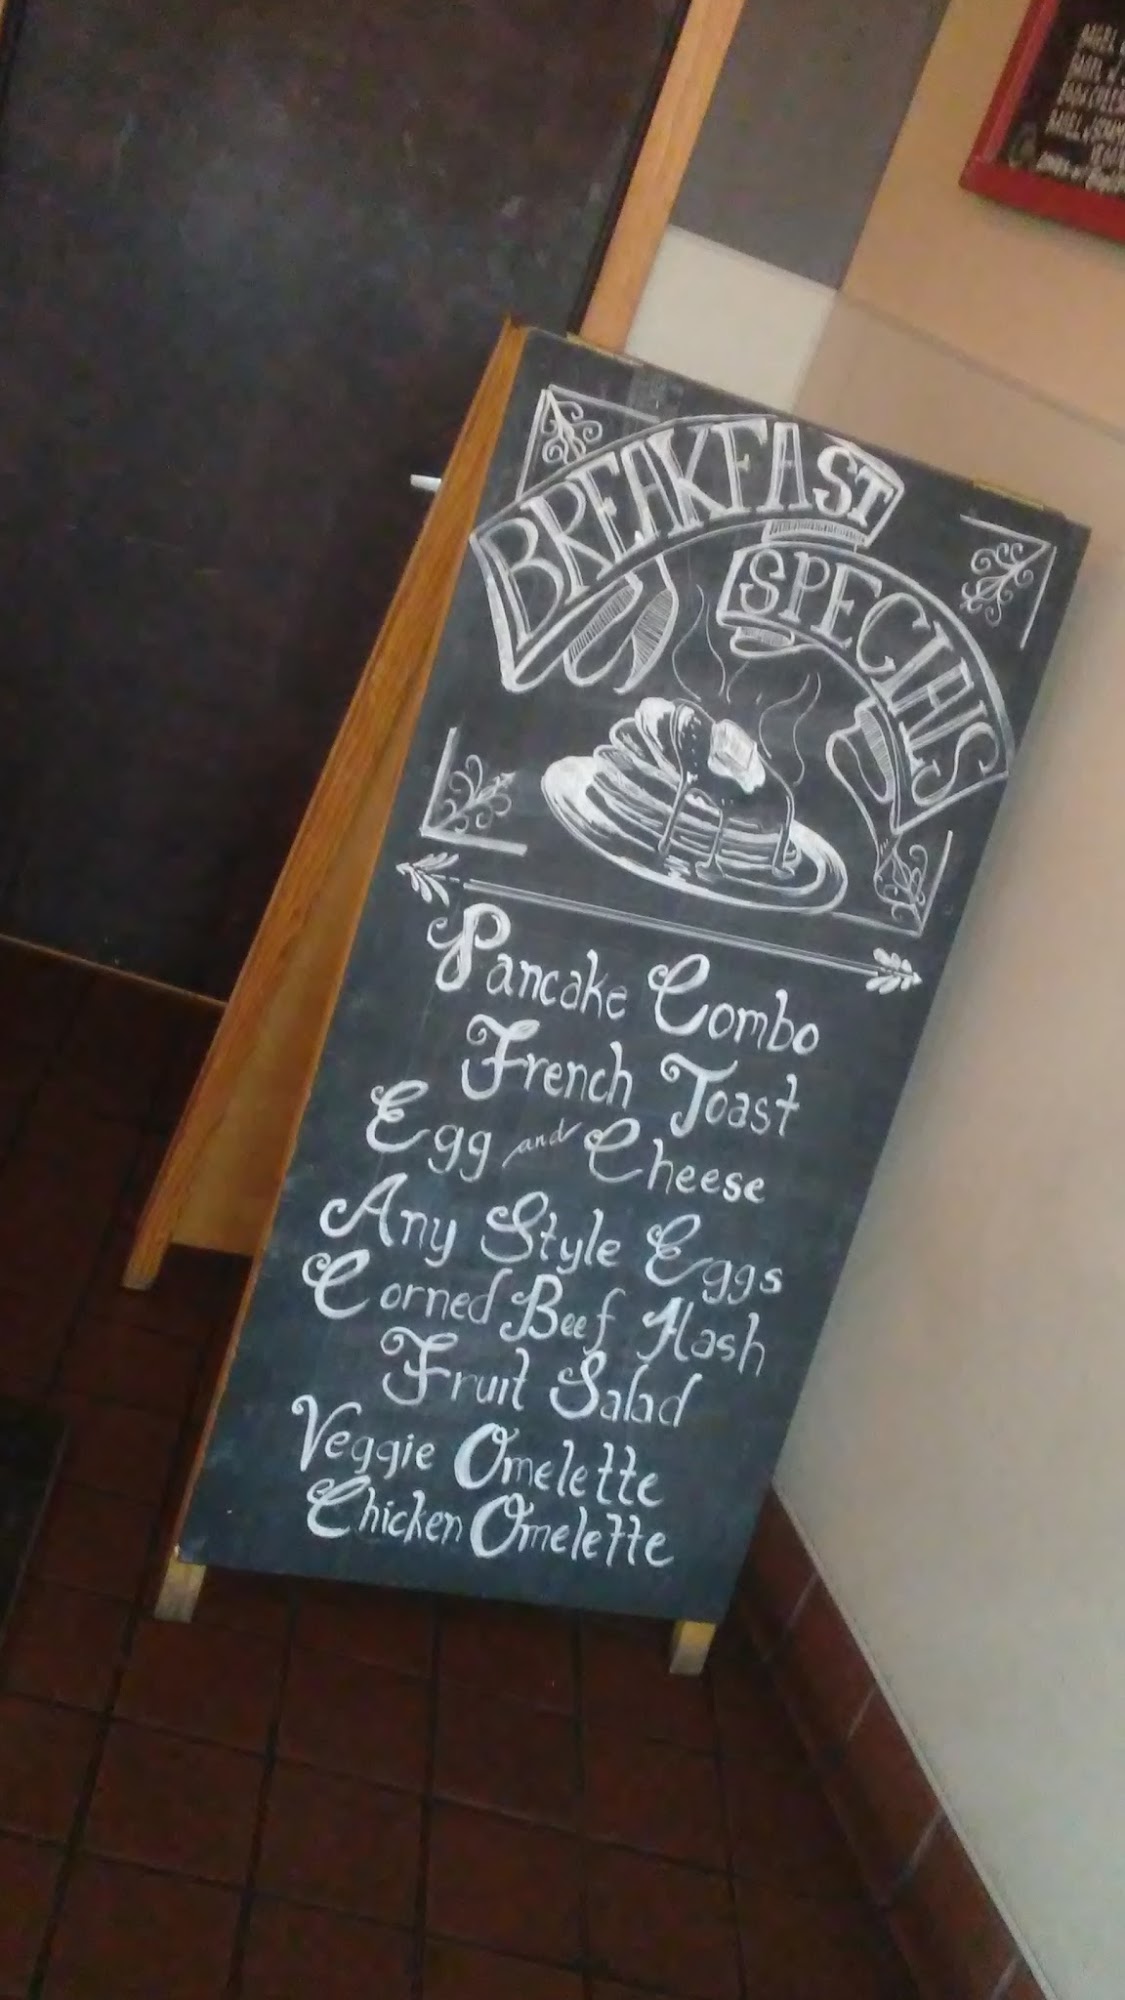 BREAKFAST
SPECIALS
Pancake Combo
French Toast
Egg and Cheese
Any Style Eggs
Corned Beef Hash
Fruit Salad
Veggie Omelette
Chicken Omelette